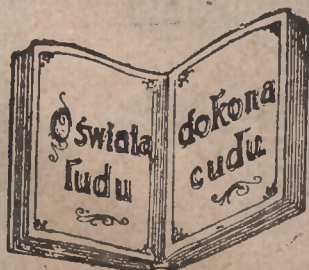 Oświata
ludu
dokona
cudu